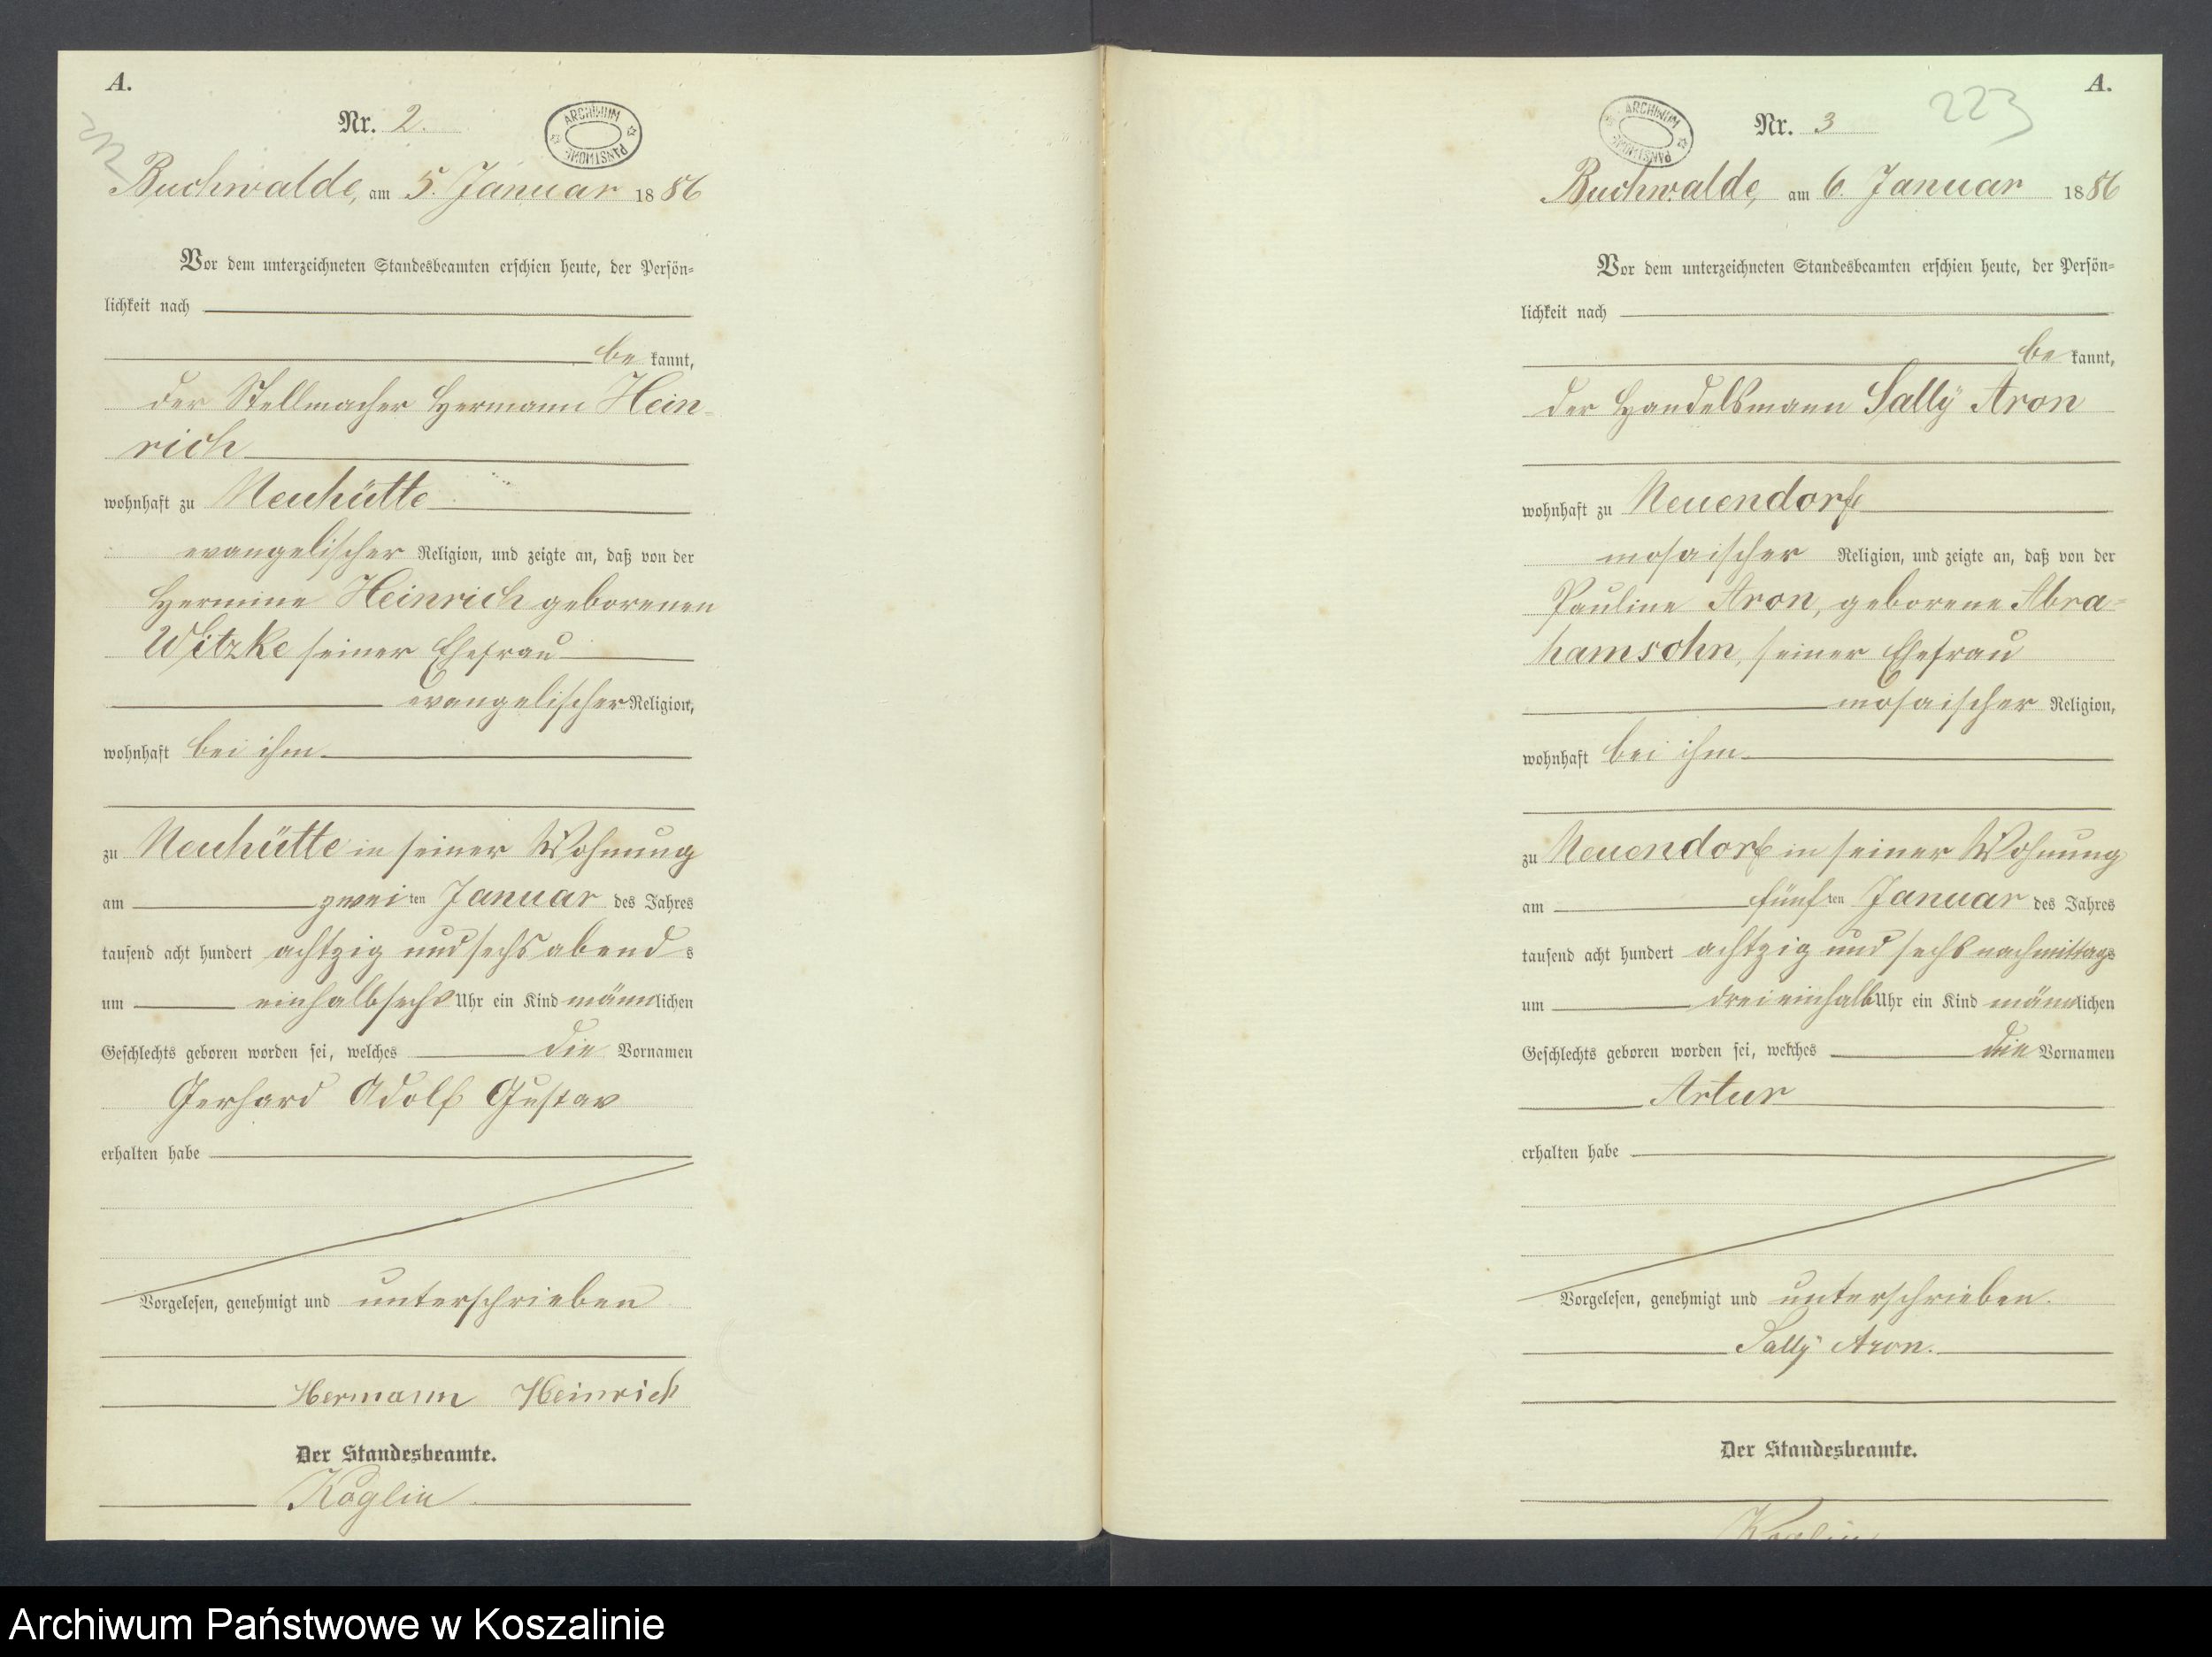 A.
Nr. 2.
ARCHIWUM PAŃSTWOWE
Buchwalde, am 5. Januar 1886
Vor dem unterzeichneten Standesbeamten erschien heute, der Persön-
lichkeit nach
be kannt,
der Stellmacher Hermann Hein-
rich
wohnhaft zu Neuhütte
evangelischer Religion, und zeigte an, daß von der
Hermine Heinrich geborenen
Witzke seiner Ehefrau
evangelischer Religion,
wohnhaft bei ihm
zu Neuhütte in seiner Wohnung
am zweiten Januar des Jahres
tausend acht hundert achtzig und sechs abends
um einhalbsechs Uhr ein Kind männlichen
Geschlechts geboren worden sei, welches die Vornamen
Gerhard Adolf Gustav
erhalten habe
Vorgelesen, genehmigt und unterschrieben
Hermann Heinrich
Der Standesbeamte.
Köglin
A.
223
Nr. 3
ARCHIWUM PAŃSTWOWE
Buchwalde, am 6. Januar 1886
Vor dem unterzeichneten Standesbeamten erschien heute, der Persön-
lichkeit nach
be kannt,
der Handelsmann Sally Aron
wohnhaft zu Neuendorf
mosaischer Religion, und zeigte an, daß von der
Pauline Aron, geborene Abra-
hamsohn, seiner Ehefrau
mosaischer Religion,
wohnhaft bei ihm
zu Neuendorf in seiner Wohnung
am fünften Januar des Jahres
tausend acht hundert achtzig und sechs nachmittags
um dreieinhalb Uhr ein Kind männlichen
Geschlechts geboren worden sei, welches die Vornamen
Artur
erhalten habe
Vorgelesen, genehmigt und unterschrieben.
Sally Aron.
Der Standesbeamte.
Archiwum Państwowe w Koszalinie